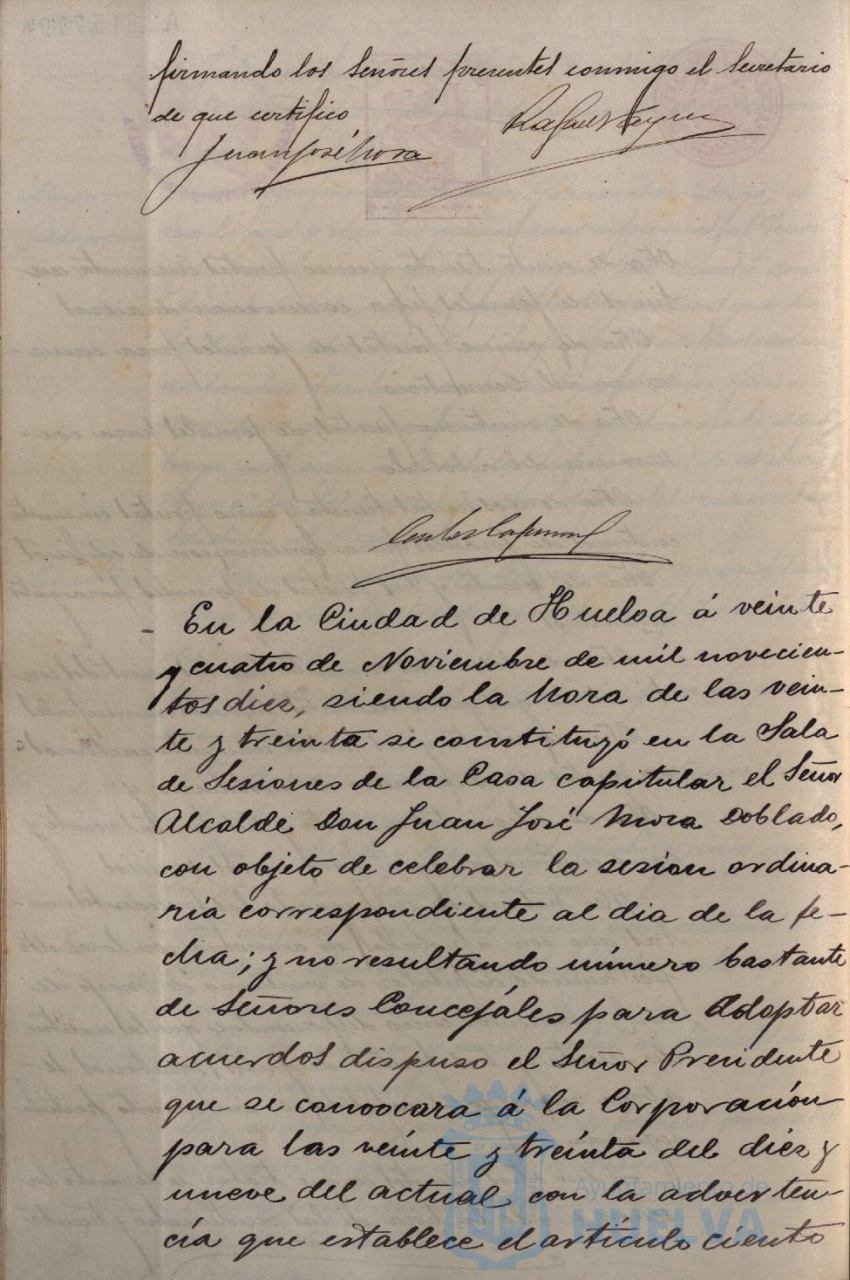 firmando los Señores presentes conmigo el Secretario
de que certifico
Juan José Mora
Rafael
En la Ciudad de Huelva á veinte
y cuatro de Noviembre de mil novecien-
tos diez, siendo la hora de las vein-
te y treinta se constituyó en la Sala
de Sesiones de la Casa capitular el Señor
Alcalde Don Juan José Mora Doblado,
con objeto de celebrar la sesion ordina-
ria correspondiente al dia de la fe-
cha; y no resultando número bastante
de Señores Concejáles para Adoptar
acuerdos dispuso el Señor Presidente
que se convocara á la Corporación
para las veinte y treinta del diez y
nueve del actual con la adverten-
cía que establece el artículo ciento
Ayuntamiento de
HUELVA